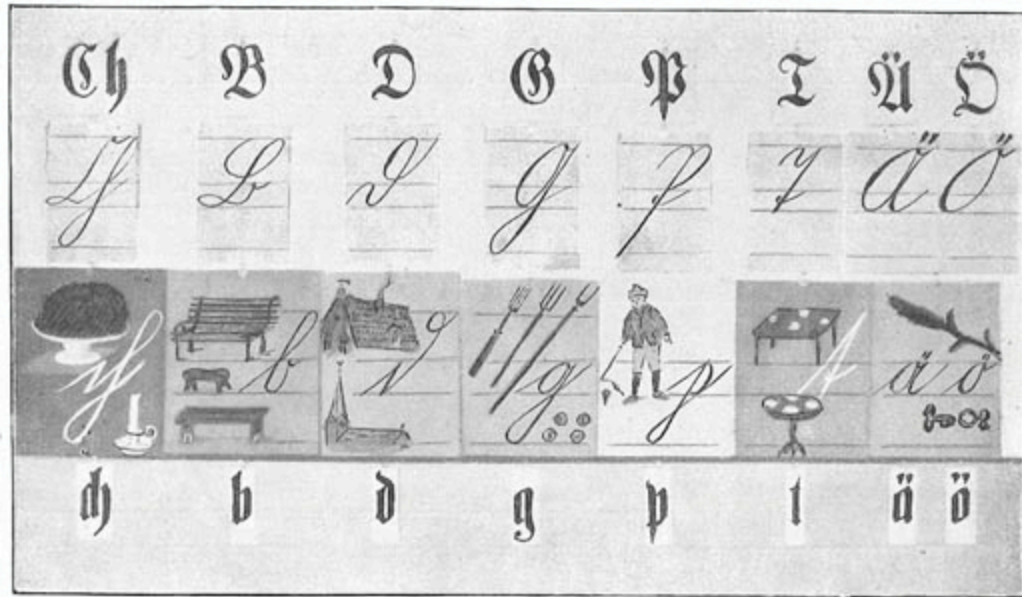 Ch B D G P T Ä Ö
Ch B D G P T Ä Ö
ch b d g p t ä ö
ch b d g p t ä ö